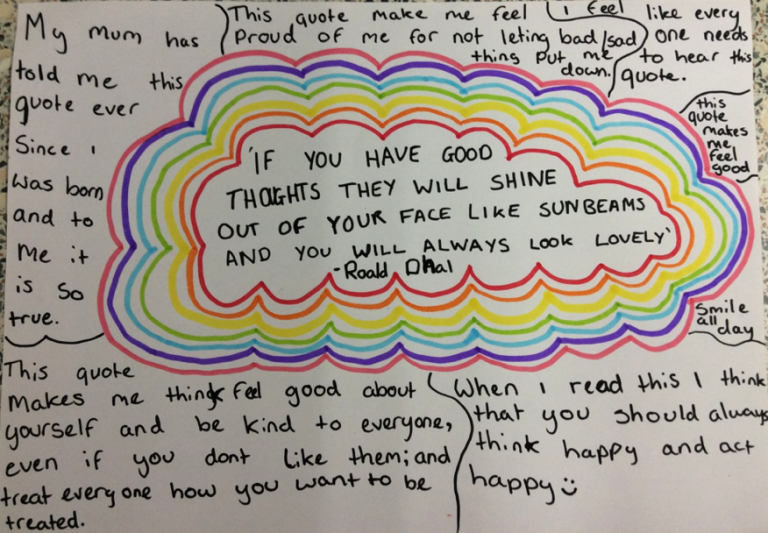 My mum has
told me this
quote ever
Since i
was born
and to
me it
is so
true.
This quote make me feel
Proud of me for not leting bad/sad
thing put me
down.
I feel like every
one needs
to hear this
quote.
this
quote
makes
me
feel
good
'IF YOU HAVE GOOD
THOGHTS THEY WILL SHINE
OUT OF YOUR FACE LIKE SUNBEAMS
AND YOU WILL ALWAYS LOOK LOVELY'
-Roald Dhal
Smile
all
day
This quote
makes me think feel good about
yourself and be kind to everyone,
even if you dont like them; and
treat everyone how you want to be
treated.
When I read this I think
that you should always
think happy and act
happy